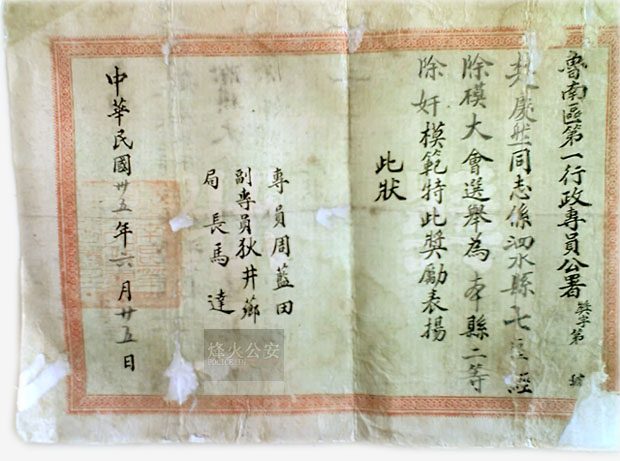 魯南區第一行政專員公署
獎字第　號
赵慶然同志係泗水縣七區經
除模大會選舉為本縣二等
除奸模範特此獎勵表揚
此狀
專員周藍田
副專員狄井薌
局長馬達
中華民國卅五年六月廿五日
烽火公安